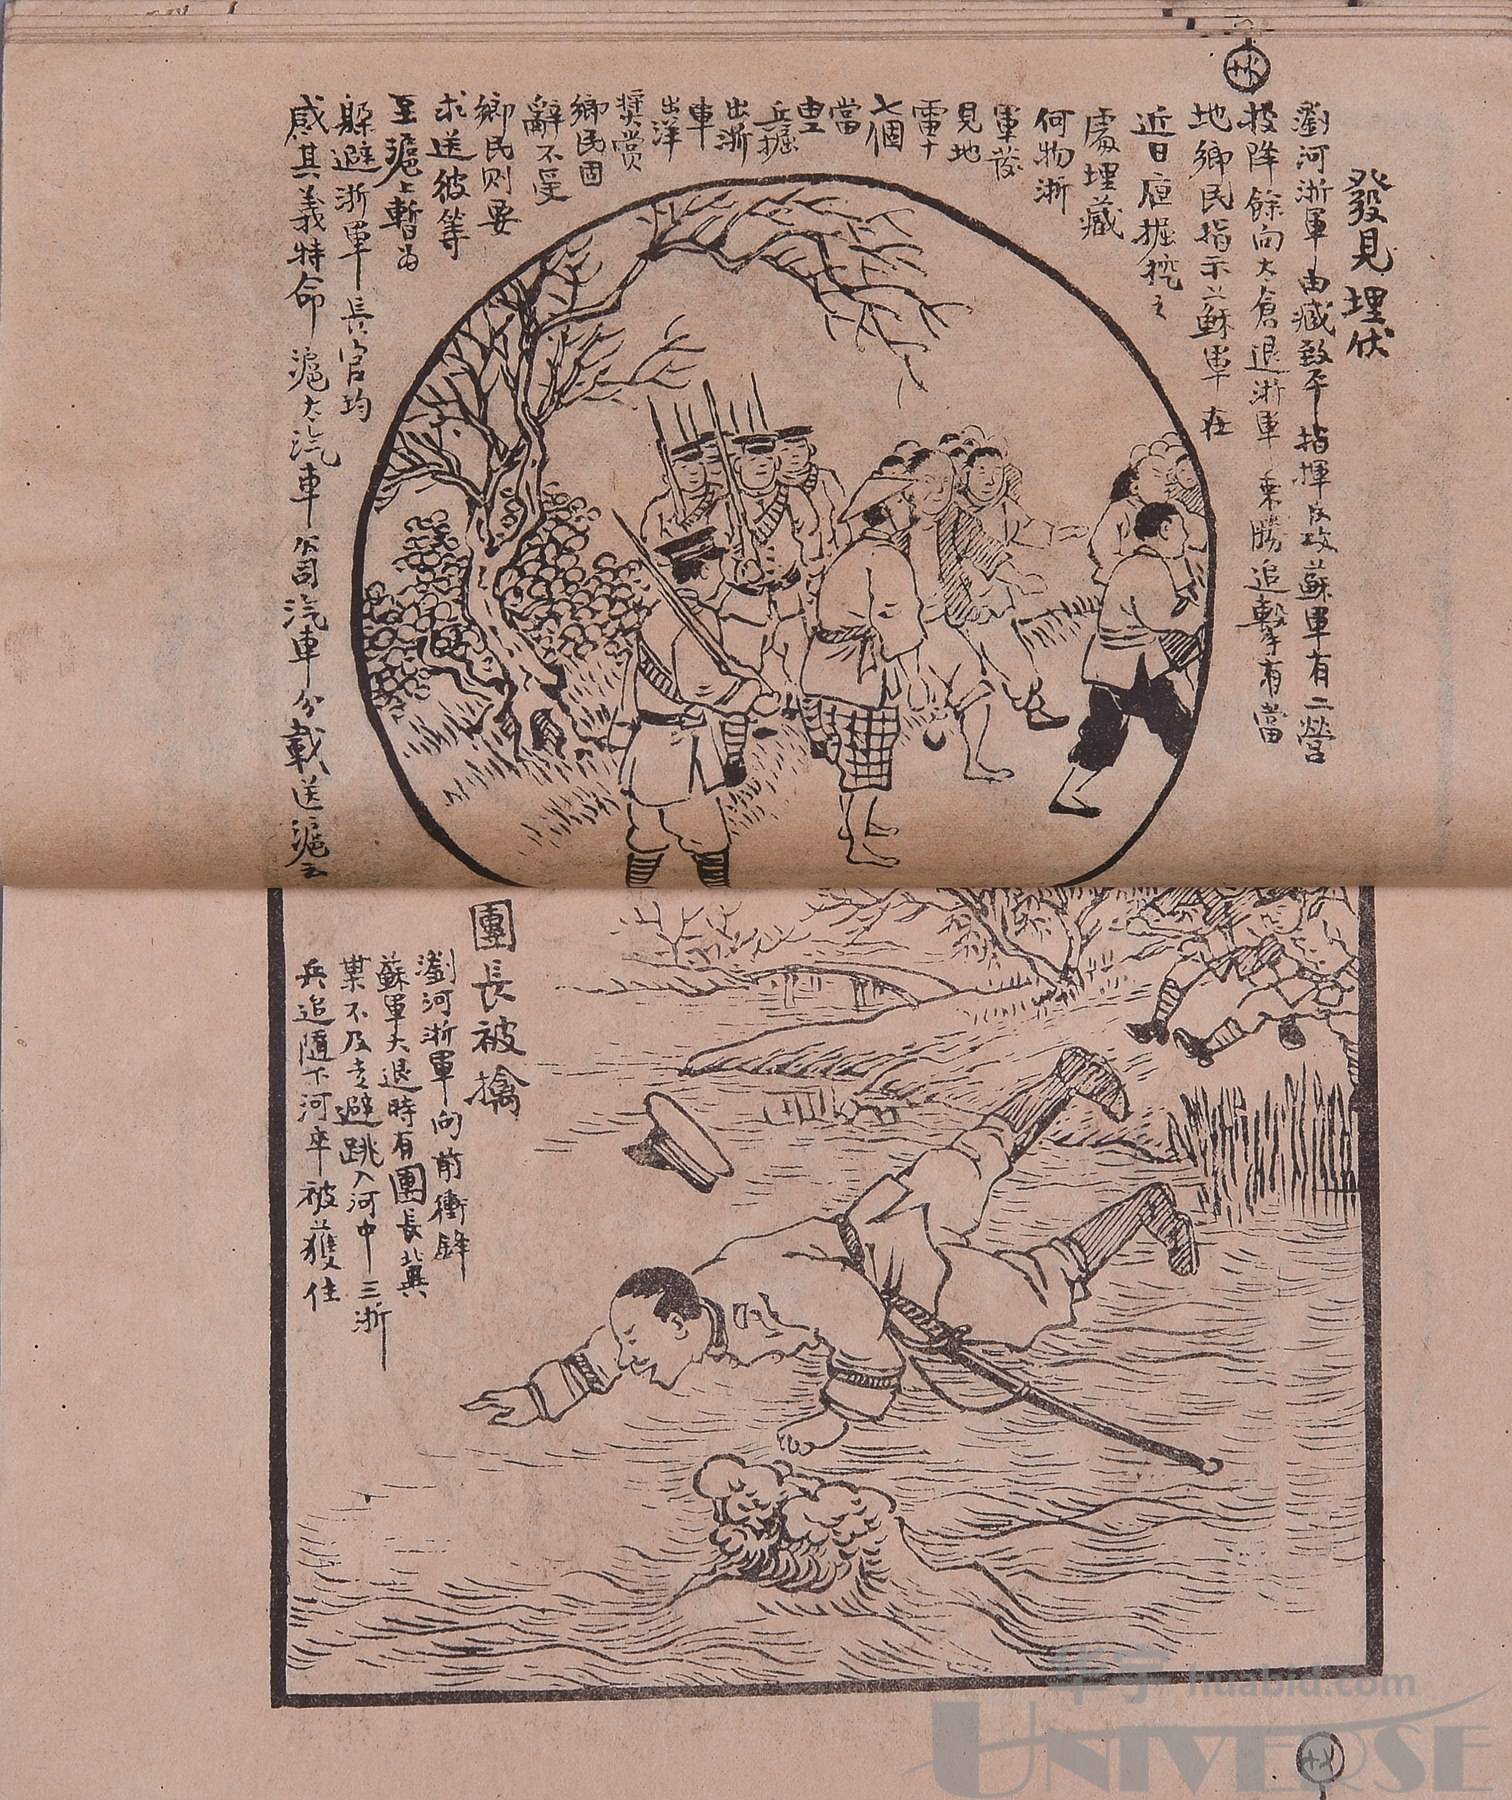 發見埋伏
瀏河浙軍由臧致平指揮反攻蘇軍有二營
投降餘向太倉退浙軍乘勝追擊有當
地鄉民指示蘇軍在
近日應掘挖之
處埋藏
何物浙
軍發
見地
雷十
七個
當
由工
兵掘
出浙
軍
出洋
獎賞
鄉民固
辭不受
鄉民則要
求送彼等
至滬上暫為
躲避浙軍長官均
感其義特命滬太汽車公司汽車分載送滬云
團長被擒
瀏河浙軍向前衝鋒
蘇軍大退時有團長冀
某不及走避跳入河中三浙
兵追隨下河卒被獲住
华宇 huabid.com
UNIVERSE